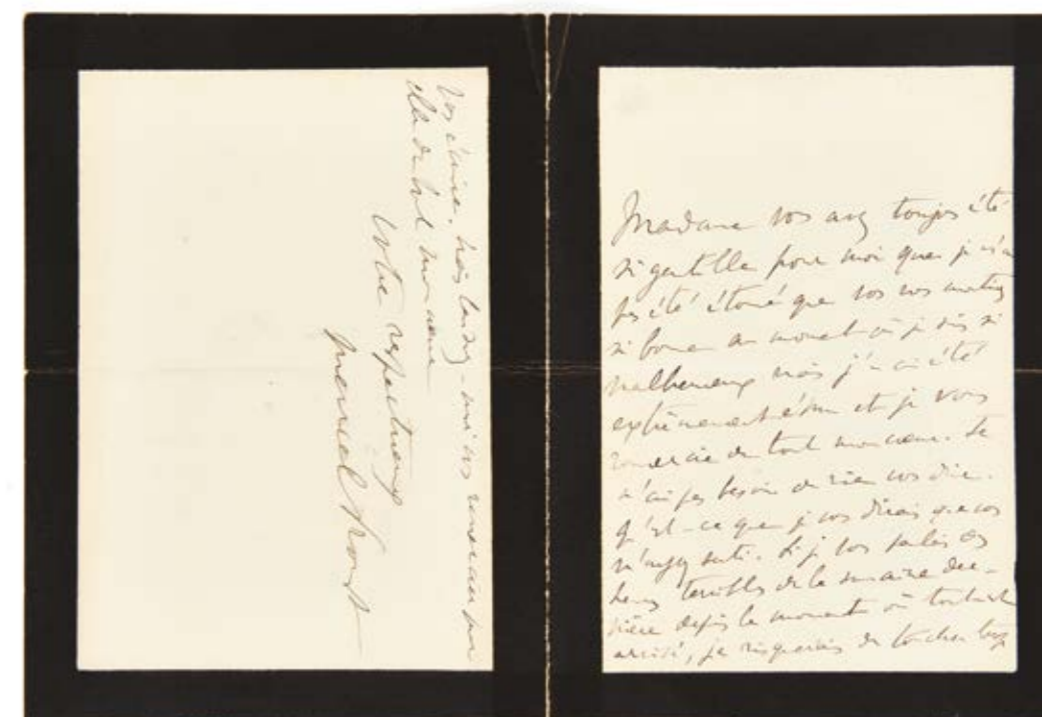 Madame vous avez toujours été
si gentille pour moi que je n'ai
pas été étonné que vous vous montriez
si bonne au moment où je suis si
malheureux mais j'en ai été
extrêmement ému et je vous
remercie de tout mon cœur. Je
n'ai pas besoin de rien vous dire.
Qu'est-ce que je vous dirais que vous
n'ayez senti. Si je vous parlais des
heures terribles de la semaine der-
nière depuis le moment où tout est
arrivé, je risquerais de toucher trop
mais laissez-moi vous remercier
de tout mon cœur
Votre respectueux
Marcel Proust